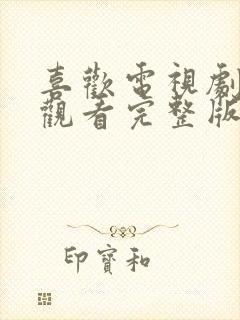 喜歡電視劇
觀看完整版
印寶和